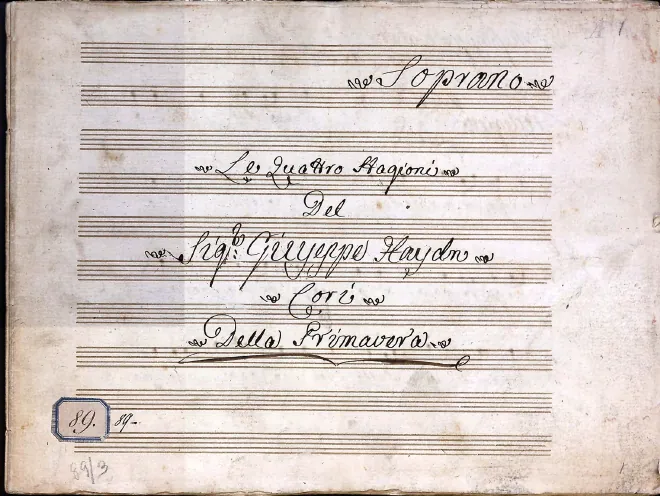 1
Soprano
Le Quattro Stagioni
Del
Sigr: Giuseppe Haydn
Cori
Della Primavera
89. 89-
89/3